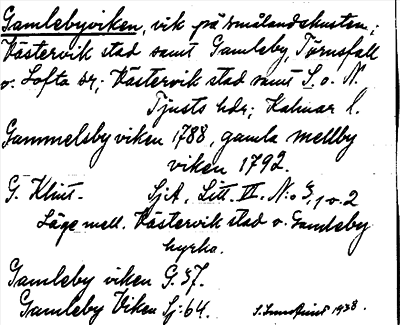 Gamlebyviken, vik på smålandskusten;
Västervik stad samt Gamleby, Törnsfall
o. Lofta sr; Västervik stad samt S. o. N.
Tjusts hdr; Kalmar l.
Gammelsby viken 1788, gamla mellby
viken 1792.
G. Klint. SjA, Litt. III. N:o 3, 1 o. 2
Läge mell. Västervik stad o. Gamleby
kyrka.
Gamleby viken G. 37.
Gamleby Viken Sj: 64. 1938.